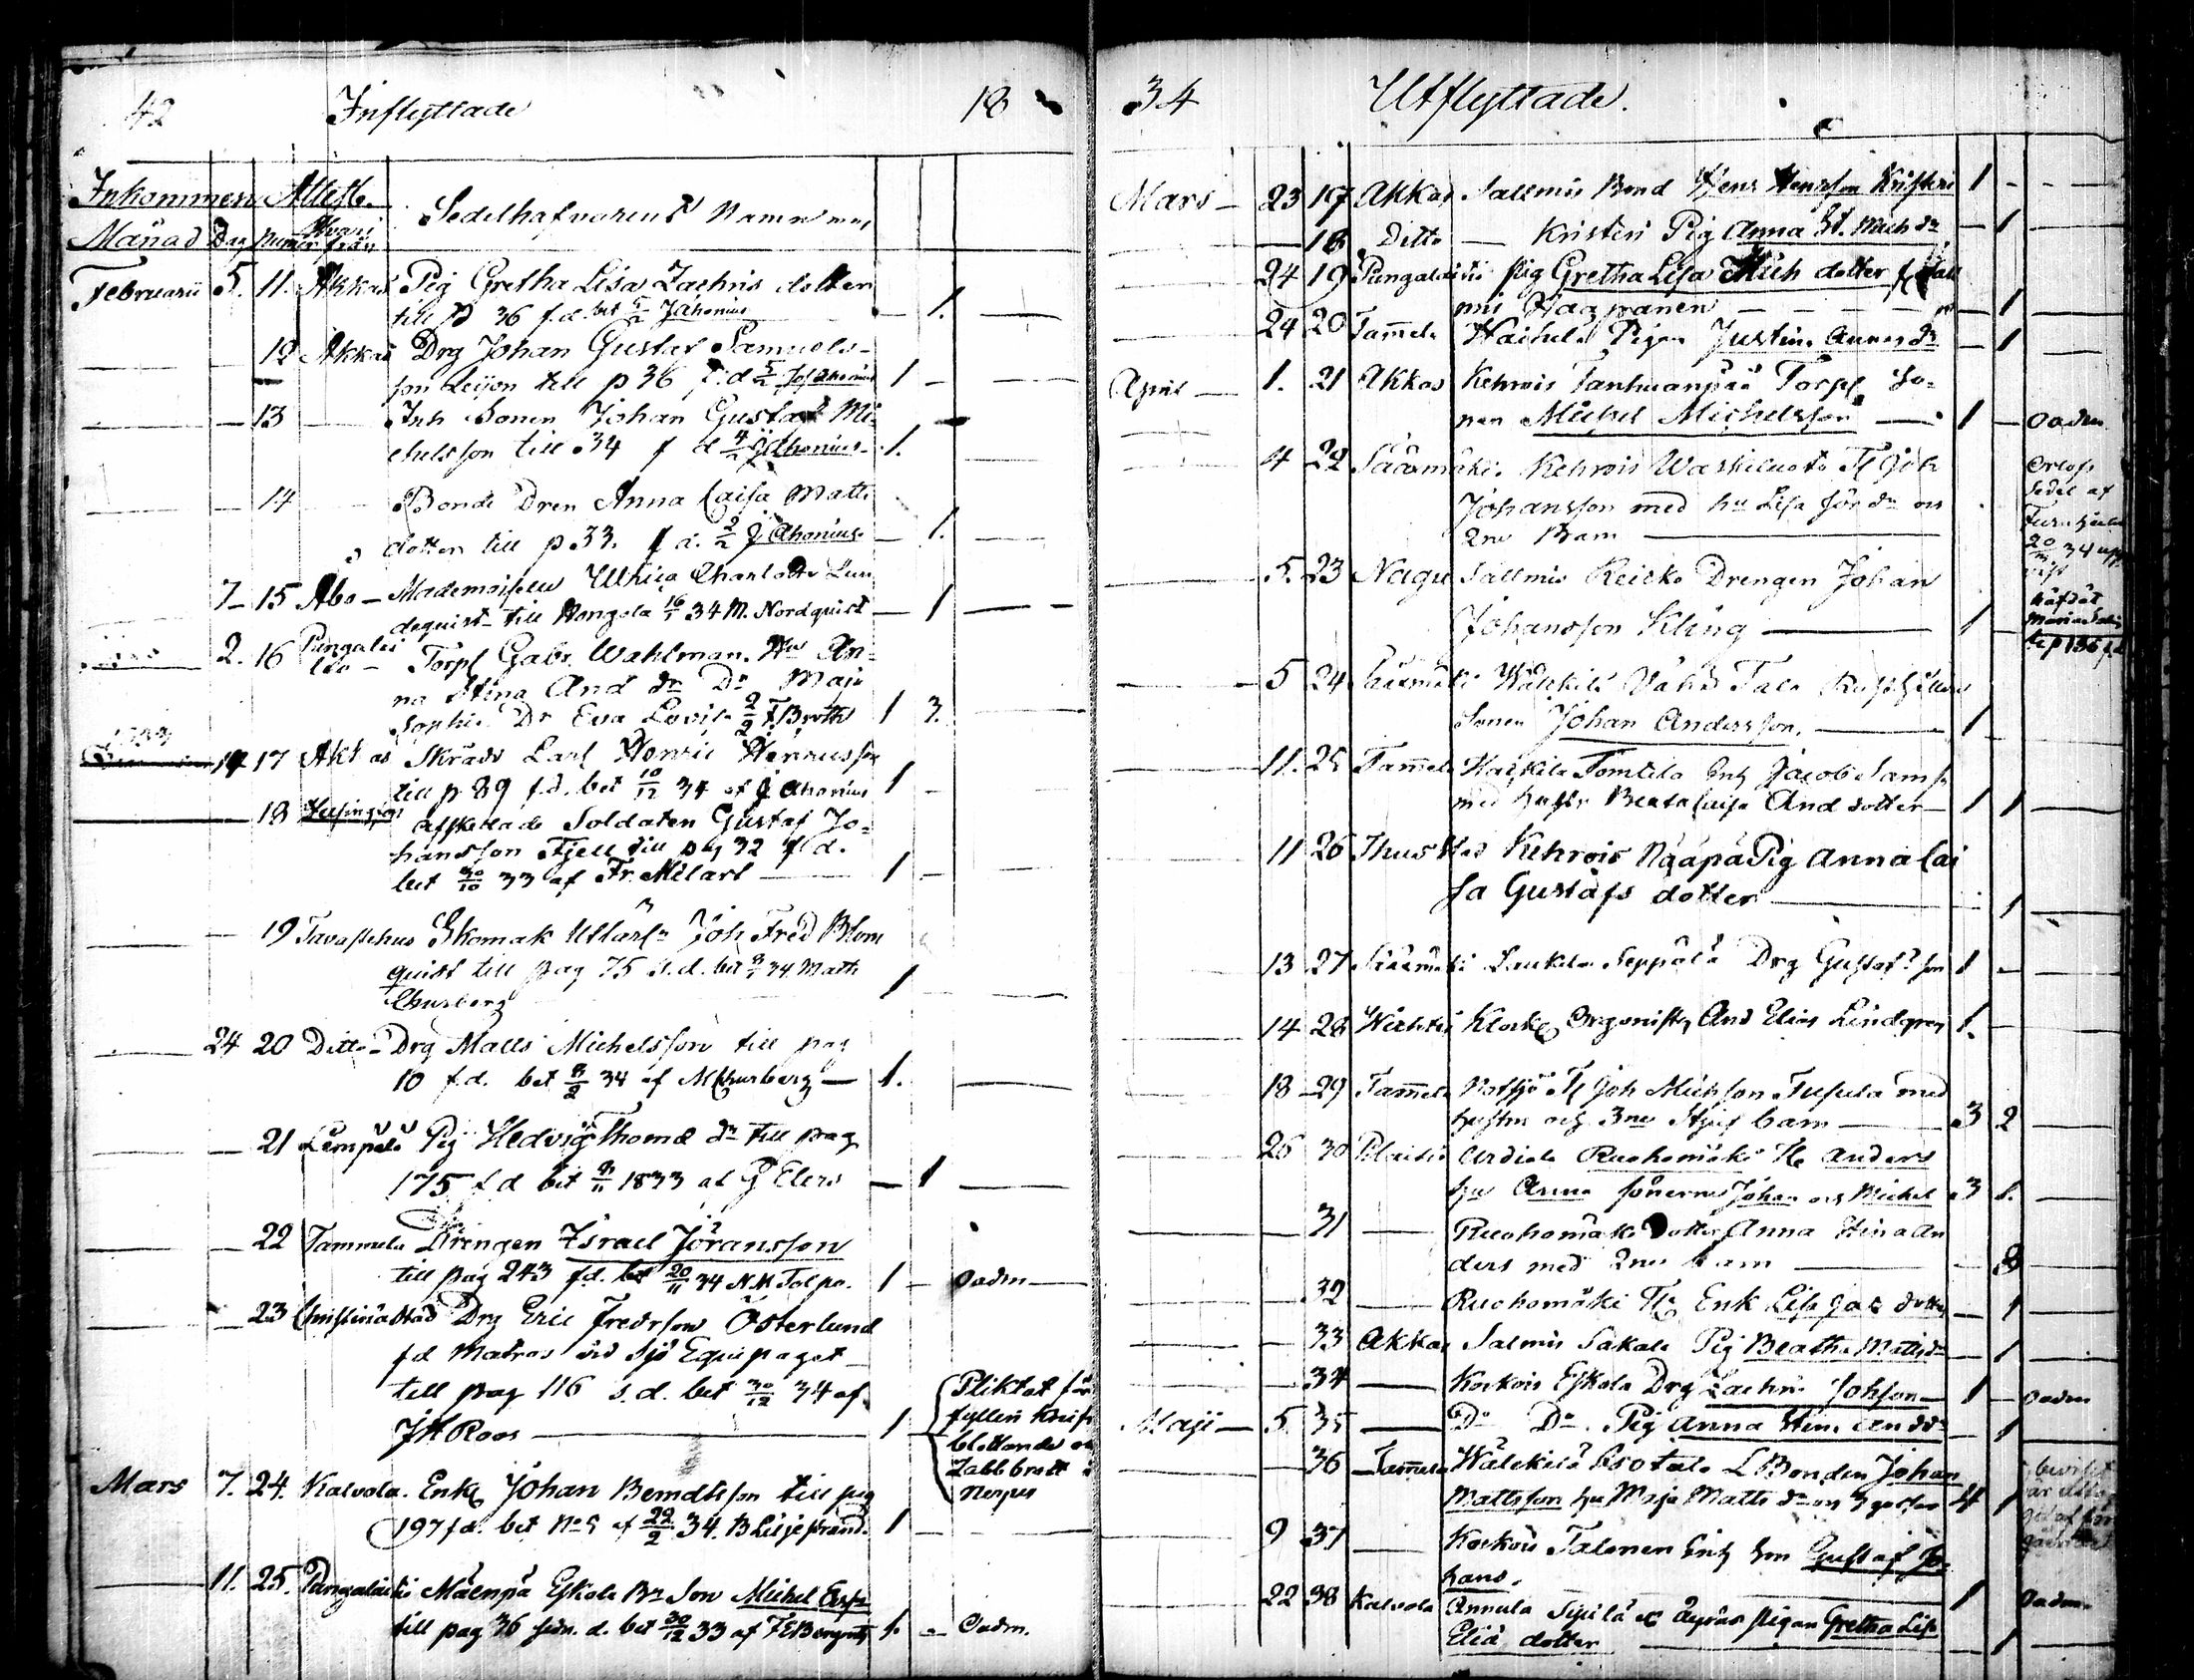 42 Inflyttade 18
Inkommen Attest.
Månad Dag Numer Hvarifrån Sedelhafvarens Namn m.m.
Februarii 5. 11. Akkas Pig Gretha Lisa Zachris dotter
till p 36 f.d. bet 5/2 J Ahonius 1.
12 Akkas Drg Johan Gustaf Samuels-
son Leijon till p 36 f.d 5/2 Jos Ahonius 1
13 Inh Sonen Johan Gustaf Mi-
chelsson till 34 f d 4/2 J Ahonius 1.
14 Bonde Dren Anna Caisa Matts
dotter till p 33. f d. 2/2 J Ahonius 1.
7 15 Åbo Mademoiselle Ulrica Charlotta Lun
dequist till Hongola 16/1 34 M. Nordquist 1
2. 16 Pungalai
tio Torpl Gabr. Wahlman. Hu An-
na Stina And dr Dr Maja
Sophia Dr Eva Lovisa 2/2 F. Broth 1 3.
1733
14 17 Akkas Skrädd Carl Henric Henricsson
till p 89 f.d. bet 10/12 34 af J Ahonius 1
18 Helsingfors afskedade Soldaten Gustaf Jo-
hansson Fjell till pag 32 f d.
bet 30/10 33 af Fr. Milart 1
19 Tavastehus Skomak Utlärl Joh Fred Blom
quist till pag 75 s.d. bet 34 Math
Churberg 1
24 20 Ditto Drg Matts Michelsson till pag
10 f.d. bet 8/2 34 af M Churberg 1.
21 Lempälä Pig Hedvig Thomæ dr till pag
175 f d bet 8/11 1833 af G Elers 1
22 Tammela Drengen Israel Jöransson
till pag 243 f.d. bet 20/11 34 N.H Tolpo. 1 Oadm
23 Christinæstad Drg Eric Fredrsson Österlund
f d Matros vid Sjö Equipaget
till pag 116 s.d. bet 30/12 34 af
J H Roos 1
Pliktat för
fylleri Knif
blottande och
Sabbbrott i
Nerpes
Mars 7. 24. Kalvola. Enkl Johan Berndtsson till pag
197 f.d. bet No 5 af 22/2 34. B Liljestrand. 1
11. 25. Pungalaitio Mäenpä Eskola Br Son Michel Ersson
till pag 36 s.d. bet 30/12 33 af F E Bergroth 1. Oadm.
34 Utflyttade.
Mars 23 17 Akkas Sallmis Bond Henr Henrsson Kristeri 1
18 Ditto Kristeri Pig Anna St. Mich dr 1
24 19 Pungalaitio Pig Gretha Lisa Mich dotter f Sall
mis Haapanen 1
24 20 Tammela Haihula Pigan Justina Annas dr 1
April 1. 21 Akkas Kehrois Tanhuanpää Torpl So-
nen Michel Michelsson 1 Oadm.
4 22 Sääxmäki Kehrois Waskiluoto Tl Joh
Johansson med hu Lisa Jör dr och
2ne Barn
Orlofs
Sedel af
20 34 upp
vist
5. 23 Nagu Sallmis Reicko Drengen Johan
Johansson Kling 1
5 24 Sääxmäki Wälkkilä Vähä Talo Rusthållare
Sonen Johan Andersson. 1
11. 25 Tammela Haikila Tomtila Enkl Jacob Sams
med hustr Beata Caisa And dotter 1 1
11 26 Thusstad Kehrois Nääpä Pig Anna Cai
sa Gustafs dotter 1
13 27 Sääxmäki Laukela Seppälä Drg Gustaf son 1
14 28 Wichtis Klock Orgonist And Elias Lindgren 1.
18 29 Tammela Notsjö Tl Joh Michsson Tusula med
hustru och 3ne Styf barn 3 2
26 30 Urdiala Ruohomäki Tl Anders
hu Anna sönerne Johan och Michel 3 1.
31 Ruohomäki Dotter Anna Stina An
ders med 2ne barn 3
32 Ruohomäki Tl Enk Lisa Jac dotter 1
33 Akkas Salmis Sakala Pig Beatha Matts dr 1
34 Koskois Eskola Drg Zachris Johsson 1 Oadm
Maji 5. 35 Do Do. Pig Anna Stin. And dr 1
36 Tammela Wälckilä Isotalo L Bonden Johan
Mattsson hu Maja Matts dr och 3 gossar 4 1
9 37 Koskois Talonen Enkl Son Gustaf Jo-
hans. 1 Oadm.
22 38 Kalvola Annula Sipilä Äyräs pigan Gretha Lis.
Eliæ dotter 1